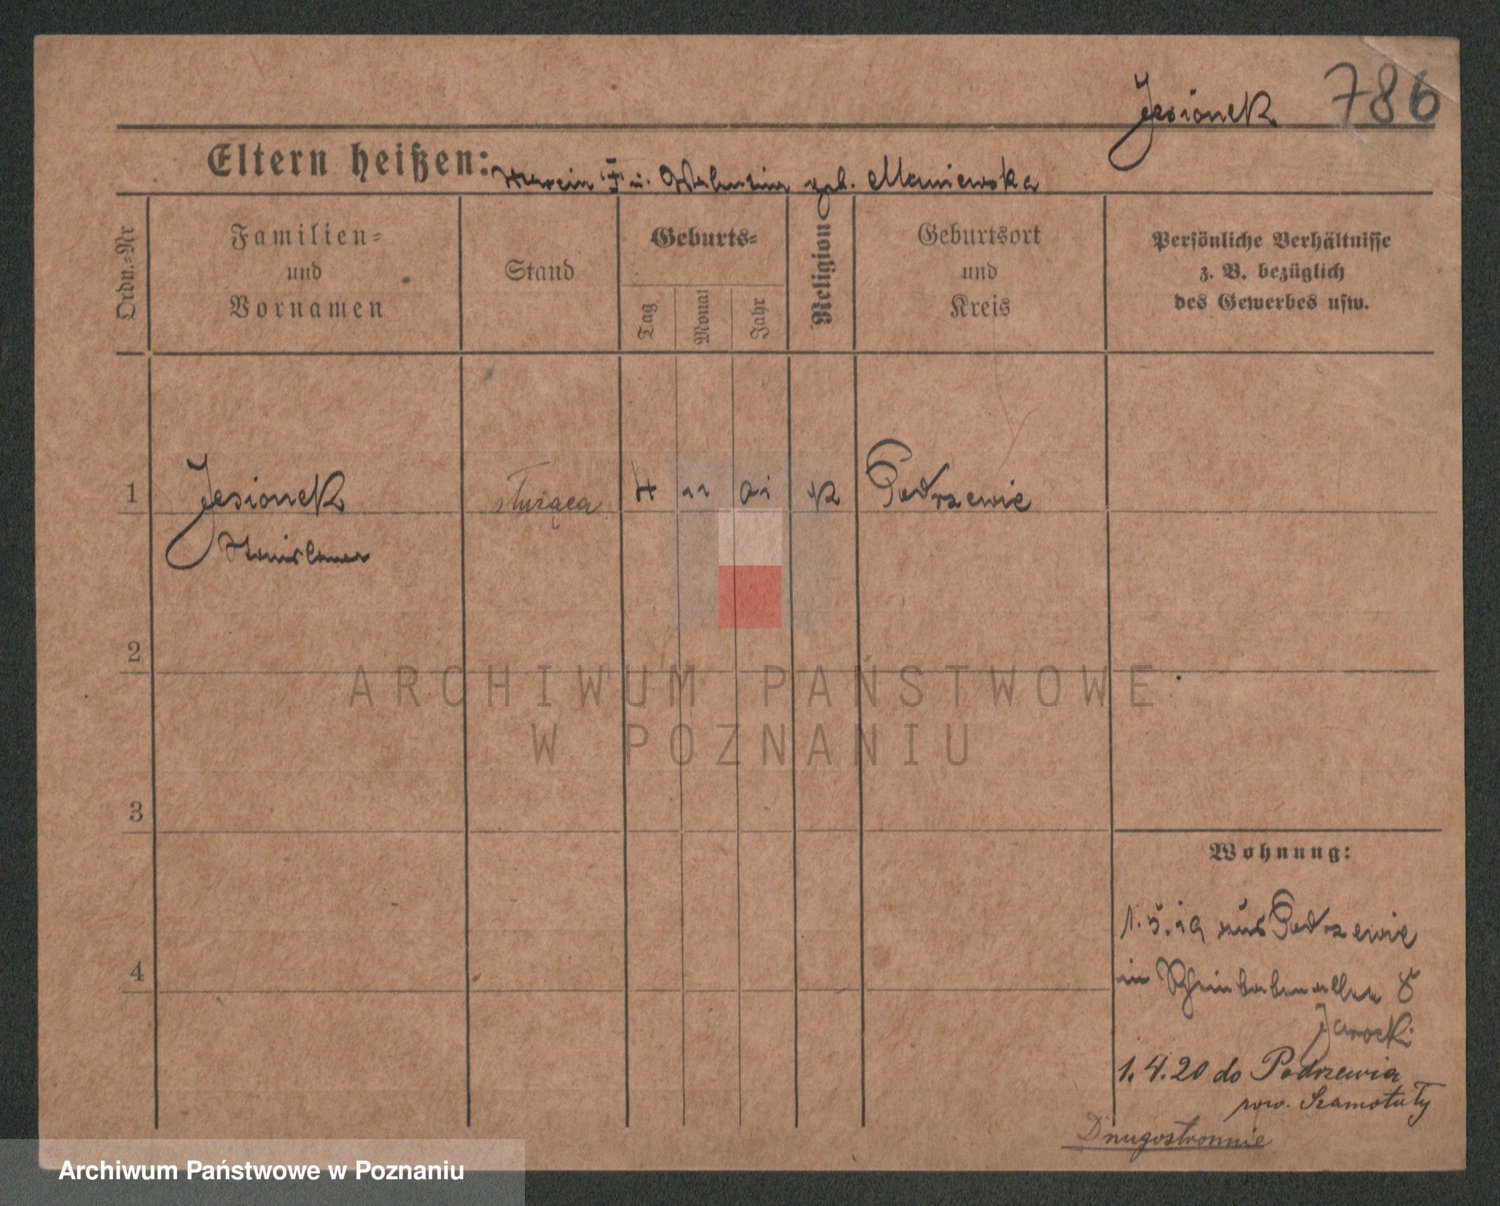 Jesionek 786
Eltern heißen: Marcin † u. Walentina geb. Maniewska
Ordn.-Nr
Familien-
und
Vornamen
Stand
Geburts-
Tag
Monat
Jahr
Religion
Geburtsort
und
Kreis
Persönliche Verhältnisse
z. B. bezüglich
des Gewerbes usw.
1 Jesionek służąca 4 11 01 K Podrzewie
Stanislawa
2
3
4
Wohnung:
1.5.19 aus Podrzewie
in 8
Jarocki
1.4.20 do Podrzewia
pow. Szamotuły
Drugostronnie
ARCHIWUM PAŃSTWOWE
W POZNANIU
Archiwum Państwowe w Poznaniu